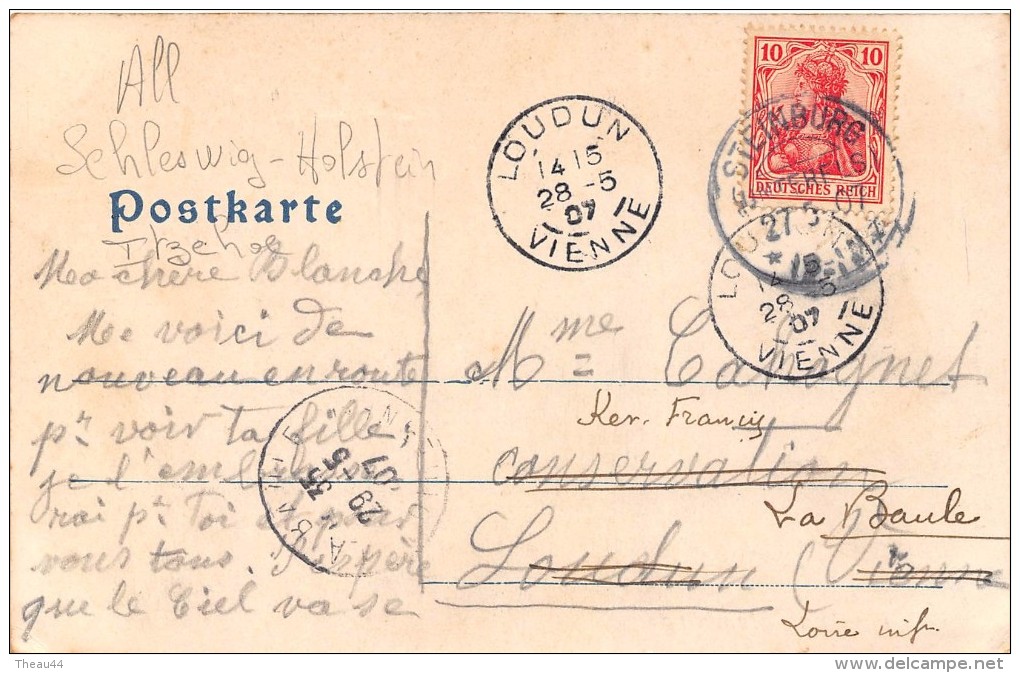 All
Schleswig-Holstein
Postkarte
Itzehoe
Ma chère Blanche
Me voici de
nouveau en route
pr voir ta fille
je l'embrasse
rai pr toi et pour
vous tous. J'espère
que le Ciel va se
LOUDUN
14 15
28 -5
07
VIENNE
10 10
DEUTSCHES REICH
STEINBURG
27 5 07
LOUDUN
15
28 -5
07
VIENNE
Mme
Ker. Francis
conservation
La Baule
Loudun (Vienne
Loire infre
LA BAULE
35
29 -5
07
Theau44
delcampe.net